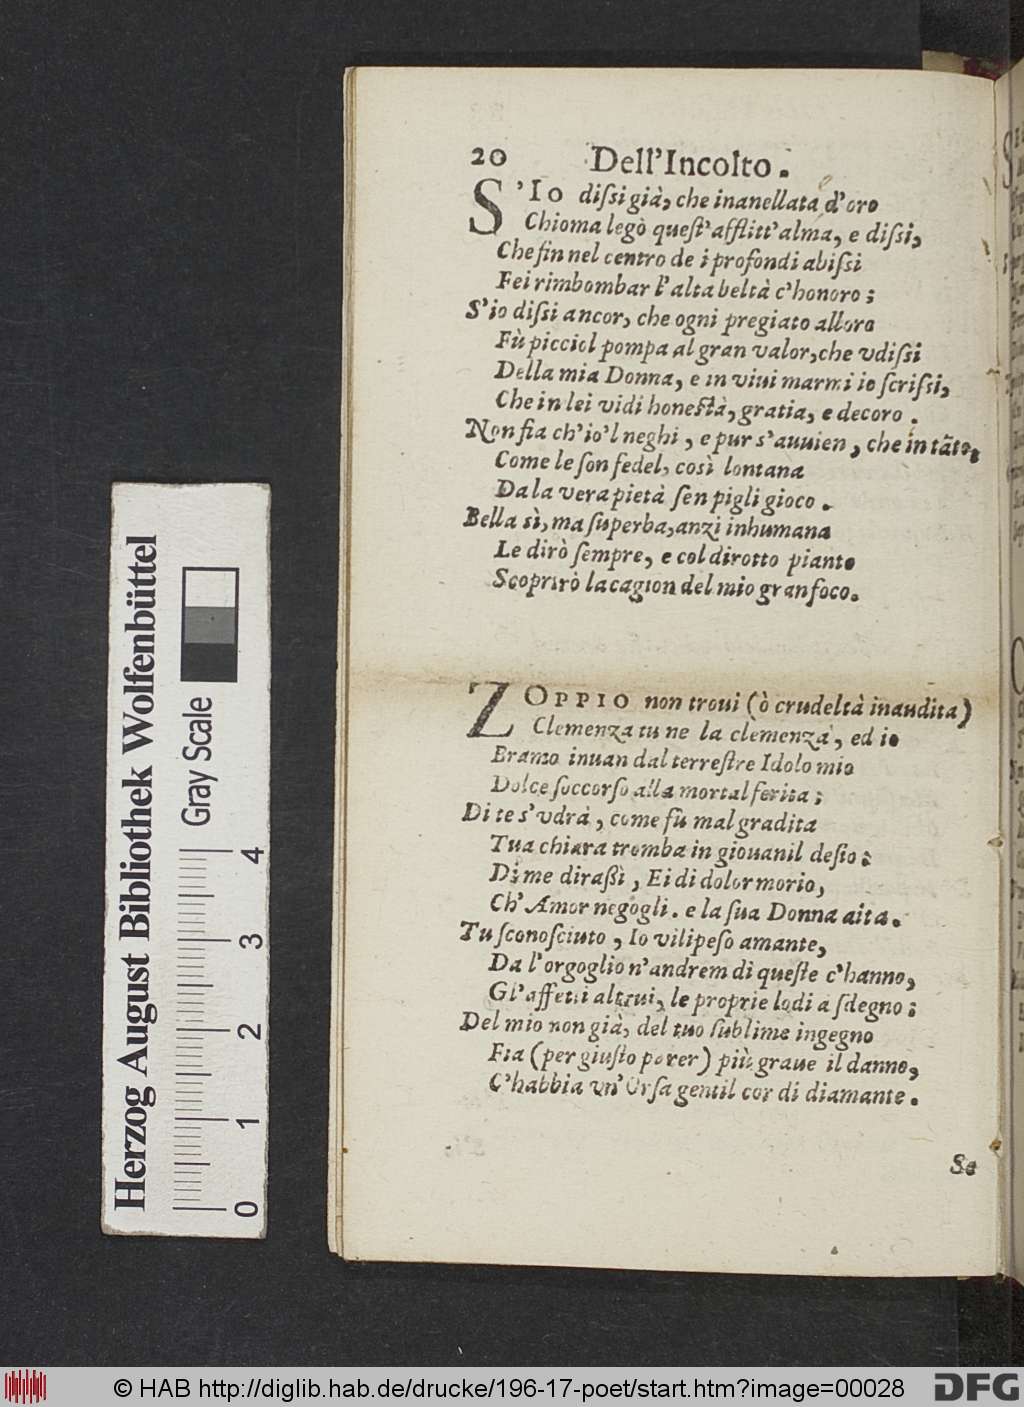 20 Dell'Incolto.
S'Io diſsi già, che inanellata d'oro
Chioma legò queſt'afflitt'alma, e diſsi,
Che fin nel centro de i profondi abiſsi
Fei rimbombar l'alta beltà c'honoro;
S'io diſsi ancor, che ogni pregiato alloro
Fù picciol pompa al gran valor, che vdiſsi
Della mia Donna, e in viui marmi io ſcriſsi,
Che in lei vidi honeſtà, gratia, e decoro.
Non fia ch'io'l neghi, e pur s'auuien, che in tãto,
Come le ſon fedel, così lontana
Da la vera pietà ſen pigli gioco.
Bella sì, ma ſuperba, anzi inhumana
Le dirò ſempre, e col dirotto pianto
Scoprirò la cagion del mio gran foco.
ZOPPIO non troui (ò crudeltà inaudita)
Clemenza tu ne la clemenza, ed io
Bramo inuan dal terreſtre Idolo mio
Dolce ſoccorſo alla mortal ferita;
Di te s'vdrà, come fù mal gradita
Tua chiara tromba in giouanil deſio;
Di me diraßi, Ei di dolor morio,
Ch'Amor negògli. e la ſua Donna aita.
Tu ſconoſciuto, Io vilipeſo amante,
Da l'orgoglio n'andrem di queſte c'hanno,
Gl'affetti altrui, le proprie lodi a ſdegno;
Del mio non già, del tuo ſublime ingegno
Fia (per giuſto parer) più graue il danno,
C'habbia vn'Orſa gentil cor di diamante.
Se
Herzog August Bibliothek Wolfenbüttel
Gray Scale
0 1 2 3 4
© HAB http://diglib.hab.de/drucke/196-17-poet/start.htm?image=00028
DFG